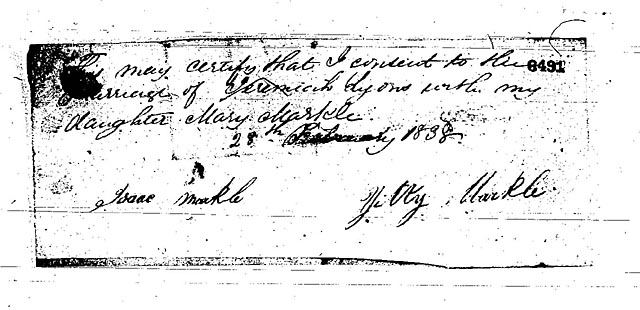 This may certify that I consent to the 6491
Marriage of Jeremiah Lyons with my
daughter Mary Markle.
28th February 1838
Isaac Markle Markle